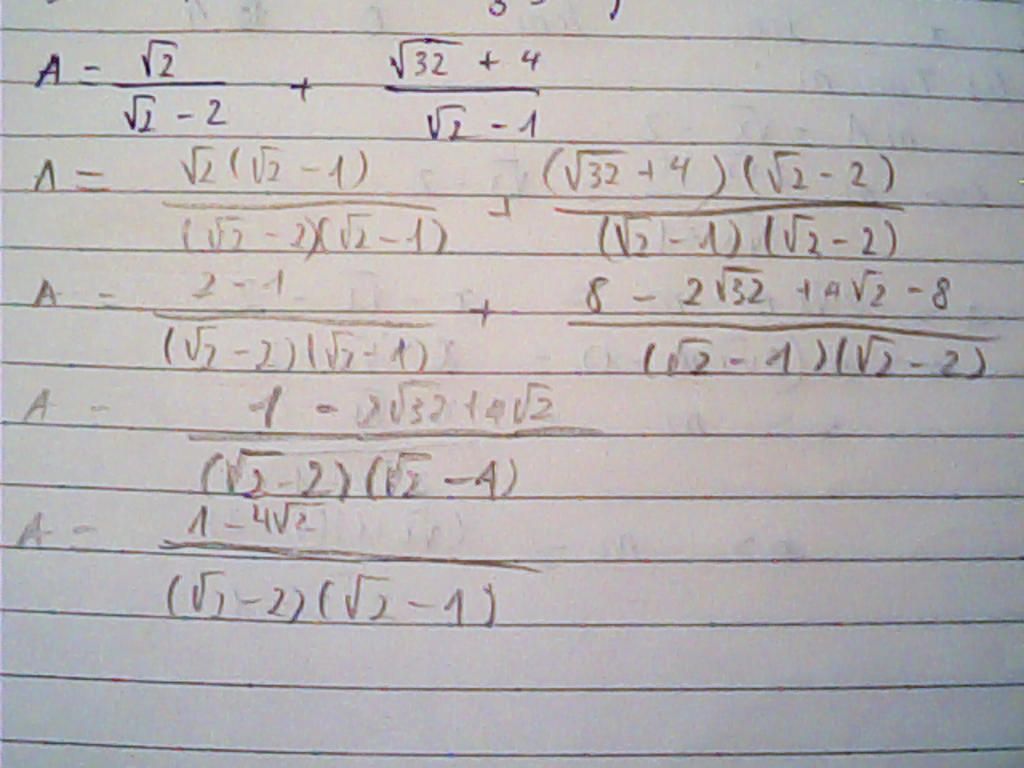 A = √2/(√2 - 2) + (√32 + 4)/(√2 - 1)
A = √2(√2 - 1)/((√2 - 2)(√2 - 1)) + (√32 + 4)(√2 - 2)/((√2 - 1)(√2 - 2))
A = (2 - 1)/((√2 - 2)(√2 - 1)) + (8 - 2√32 + 4√2 - 8)/((√2 - 1)(√2 - 2))
A = (1 - 2√32 + 4√2)/((√2 - 2)(√2 - 1))
A = (1 - 4√2)/((√2 - 2)(√2 - 1))